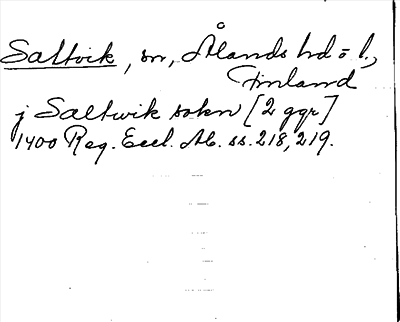 Saltvik, sn, Ålands hd o l.,
Finland
j Saltwik sokn [2 ggr]
1400 Reg. Eccl. Ab. ss. 218, 219.